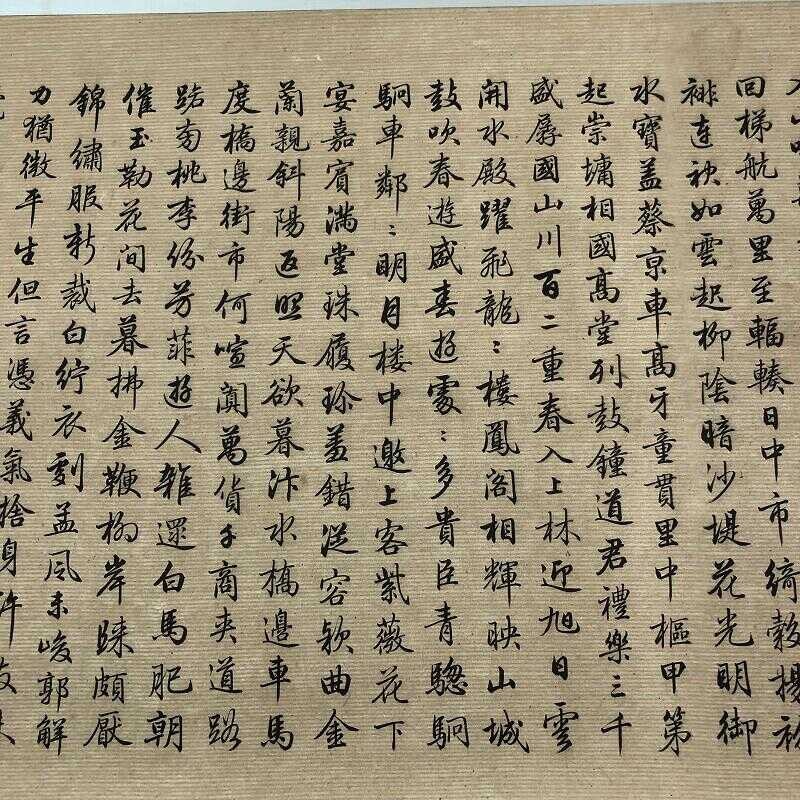 回梯航萬里至輻輳日中市綺縠揚
裶連袂如雲起柳陰暗沙堤花光明御
水寶盖蔡京車高牙童貫里中樞甲第
起崇墉相國高堂列鼓鐘道君禮樂三千
盛孱國山川百二重春入上林迎旭日雲
開水殿躍飛龍〻樓鳳阁相輝映山城
鼓吹春遊盛春逰處〻多貴臣青驄駉
駉車鄰〻明月楼中邀上客紫薇花下
宴嘉賓滿堂珠履珎羞錯從容欵曲金
蘭親斜陽返照天欲暮汴水橋邊車馬
度橋邊街市何喧闐萬貨千商夾道路
路旁桃李份芳菲逰人雜還白馬肥朝
催玉勒花間去暮拂金鞭柳岸歸頗厭
錦繡服新裁白紵衣劇孟風未峻郭解
力猶微平生但言憑義氣捨身許